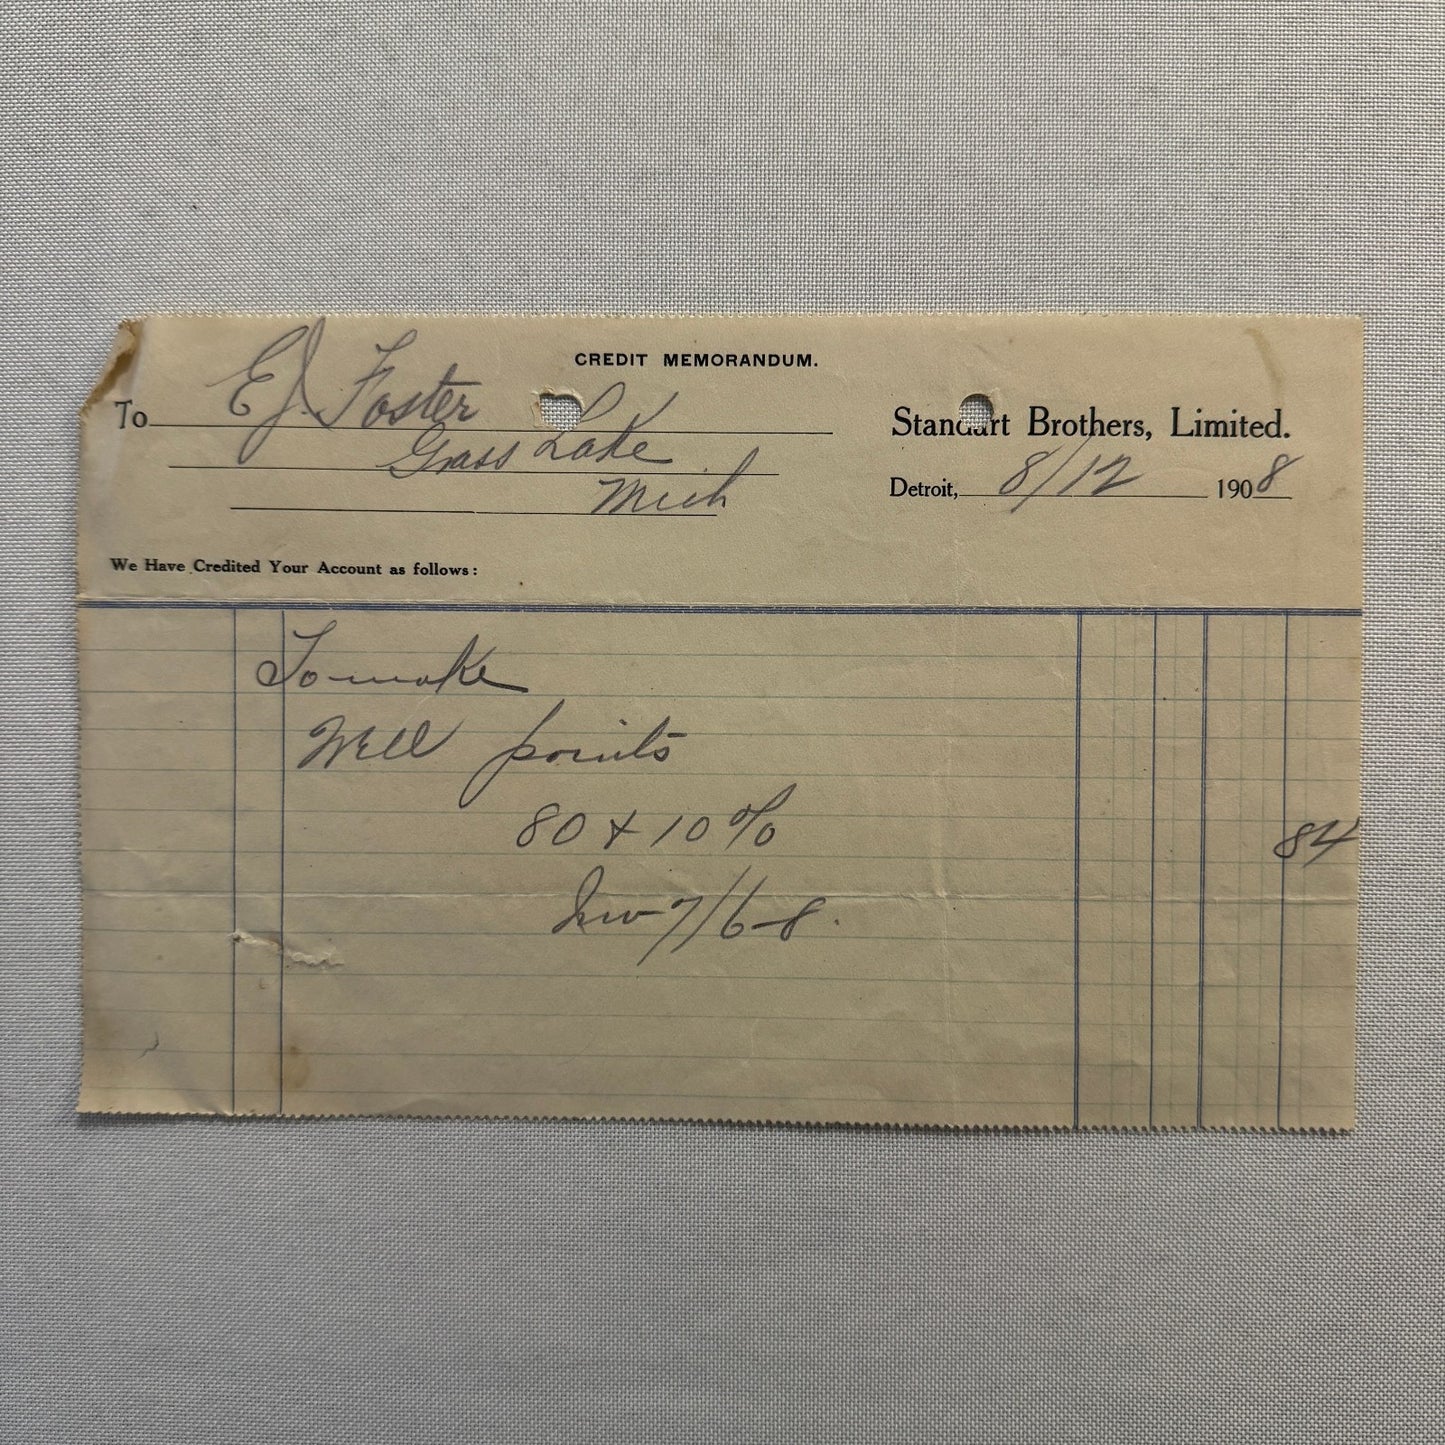 CREDIT MEMORANDUM.
To E.J. Foster
Grass Lake
Mich
Standart Brothers, Limited.
Detroit, 8/12 1908
We Have Credited Your Account as follows:
To make
Well points
80 & 10% 84
Inv 7/6-8.